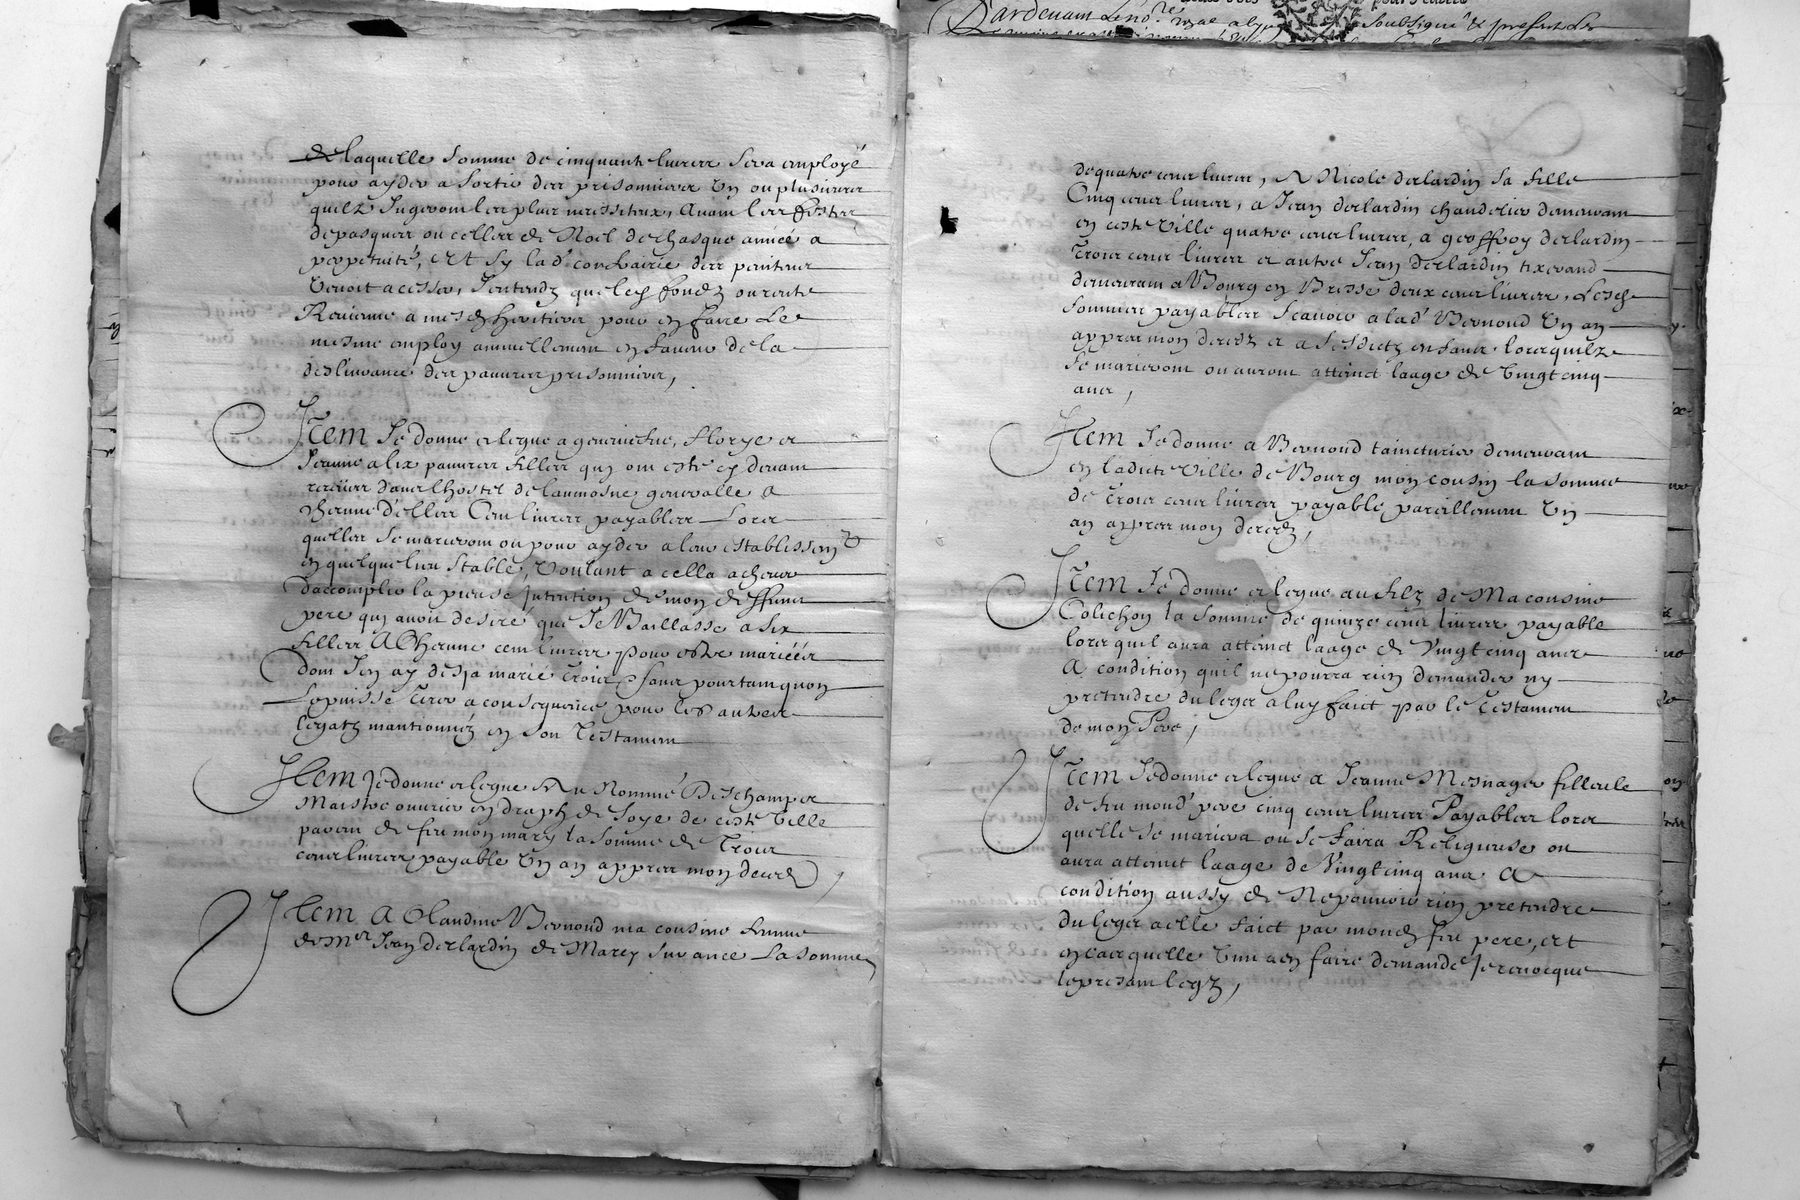 Dardenam Le no.re soubsigné & present Le
de laquelle somme de cinquante livres sera employé
pour ayder a sortir des prisonniers un ou plusieurs
quilz Jugeront les plus necessiteux, Avant les festes
depasques ou celles de Noel de chasque année a
perpetuité, et sy lad.e confrairie des penitens
venoit a cesser, Jentendz que les fondz ou rente
Revienne a mesd heritiers pour en faire Le
mesme employ annuellement en faveur de la
deslivrance des pauvres prisonniers,
Item Je donne et legue a geneviefve, Florye et
Jeanne alix pauvres filles quy ont esté cy devant
receües dans lhostel de laumosne generalle a
Chacune D'elles Cent livres payables Lors
quelles se marieront ou pour ayder a leur establissem.t
en quelque lieu stable, voulant a cella achever
Daccomplir la pieuse Jntention de mon deffunct
pere quy avoit desiré que Je Baillasse a six
filles A Chacune cent livres pour estre mariéés
dont Jen ay desja marié trois, sans pourtant quon
Le puisse tirer a consequence pour les autres
legatz mantionnéz en son Testament
Item Je donne et legue Au Nommé Deschamps
Maistre ouvrier en draph de soye de ceste ville
parent de feu mon mary la somme de Trois
cens livres payable un an appres mon decedz,
Item A Claudine Bernoud ma cousine femme
de M.er Jean Deslardin de Marcy sur ance La somme
de quatre cens livres, A Nicole deslardin sa fille
Cinq cens livres, a Jean deslardin chandelier demeurant
en ceste ville quatre cens livres, a geoffroy deslardin
trois cens livres et autre Jean Deslardin tixerand
demeurant a Bourg en Bresse deux cens livres, Lesd
sommes payables scavoir a lad.e Bernoud un an
appres mon decedz et a sesdictz enfans lors quilz
se marieront ou auront attainct laage de vingt cinq
ans,
Item Je donne a Bernoud taincturier demeurant
en ladicte ville de Bourg mon cousin la somme
de trois cens livres payable pareillement un
an appres mon decedz,
Item Je donne et legue au filz de Ma cousine
Colichon la somme de quinze cens livres payable
lors quil aura attainct laage de vingt cinq ans
A condition quil ne pourra rien demander ny
pretendre du legat a luy faict par le Testament
de mon Pere,
Item Je donne et legue a Jeanne Mesnager filleule
de feu mond.t pere cinq cens livres Payables lors
quelle se mariera ou se faira Religieuse ou
aura attainct laage de Vingt cinq ans A
condition aussy de Ne pouvoir rien pretendre
du legat a elle faict par mond feu pere, et
en cas quelle vint a en faire demande Je revocque
le present legz,